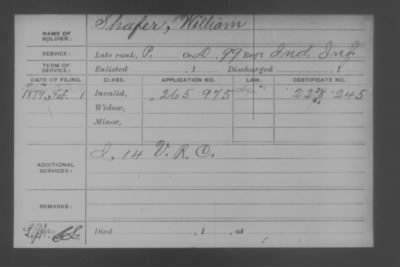 NAME OF SOLDIER: Shafer, William
SERVICE: Late rank, P. Co. D, 99 Reg't Ind. Inf
TERM OF SERVICE: Enlisted , 1 Discharged , 1
DATE OF FILING. CLASS. APPLICATION NO. CERTIFICATE NO.
1879, Feb. 1 Invalid, 265 975 245
Widow,
Minor,
ADDITIONAL SERVICES: I, 14 V. R. C.
REMARKS:
Died , 1 , at